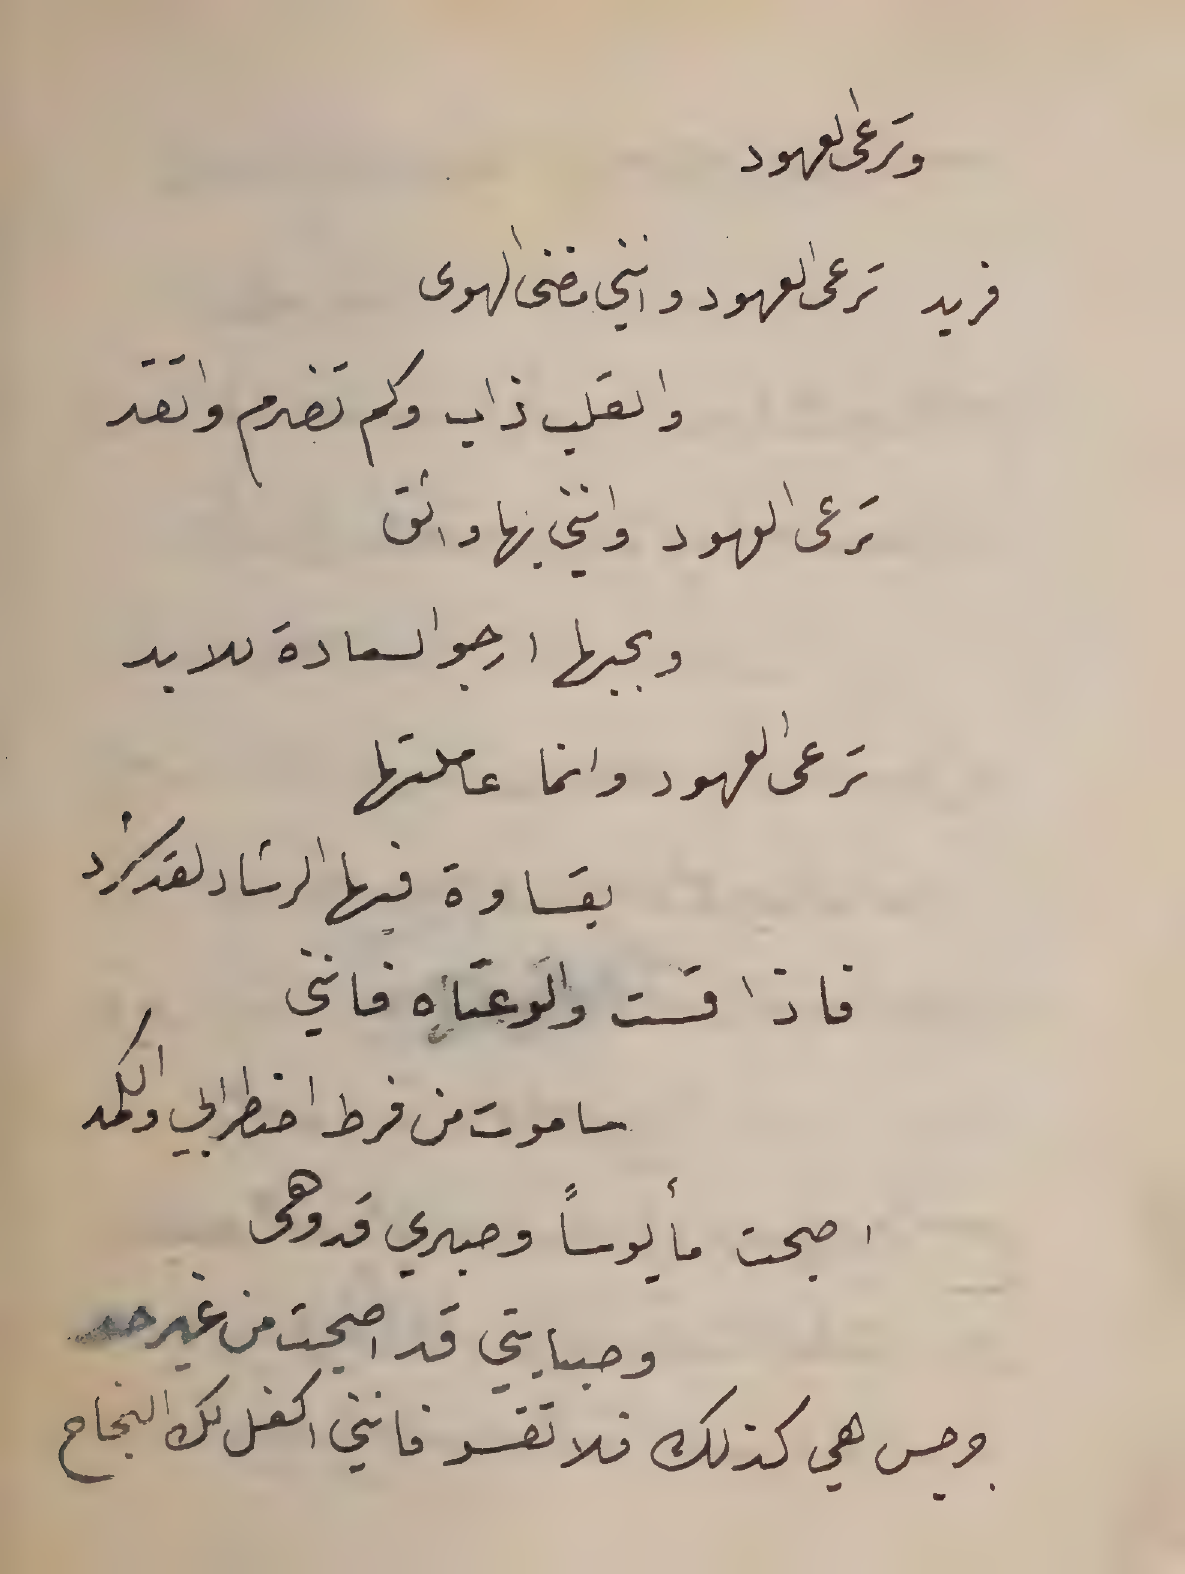 وترعى العهود
فريد ترعى العهود وانني مضنى الهوى
والقلب ذاب وكم تضرم واتقد
ترعى العهود وانني بها واثق
وبحبها ارجو السعادة للابد
ترعى العهود وانما عاملتها
بقساوة فيها الرشاد لقد شرد
فاذا قست والوعتاه فانني
ساموت من فرط اضطرابي والكمد
اصبحت مأيوساً وصبري قد وهى
وصبابتي قد اصبحت من غير حد
جرجس هي كذلك فلا تقسو فانني اكفل لك النجاح